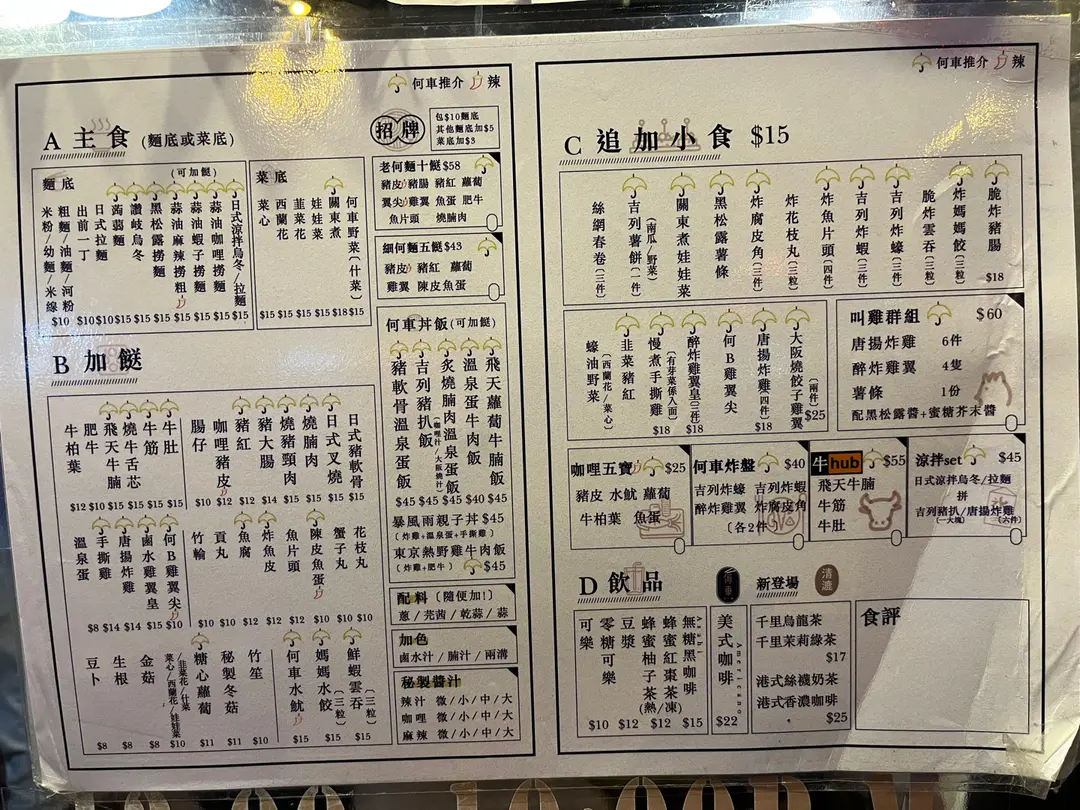 何車推介 辣
A 主食 (麵底或菜底)
招牌
包$10麵底
其他麵底加$5
菜底加$3
麵底
(可加餸)
米粉/幼麵/米線
粗麵/油麵/河粉
$10
出前一丁
$10
日式拉麵
$10
蒟蒻麵
$15
讚岐烏冬
$15
黑松露撈麵
$15
蒜油麻辣撈粗
$15
蒜油蝦子撈麵
$15
蒜油咖喱撈麵
$15
日式涼拌烏冬/拉麵
$15
菜底
菜心
$15
西蘭花
$15
韮菜花
$15
娃娃菜
$15
關東煮
$18
何車野菜(什菜)
$15
老何麵十餸$58
豬皮 豬腸 豬紅 蘿蔔
翼尖 雞翼 魚蛋 肥牛
魚片頭 燒腩肉
細何麵五餸$43
豬皮 豬紅 蘿蔔
雞翼 陳皮魚蛋
何車丼飯(可加餸)
豬軟骨溫泉蛋飯
$45
吉列豬扒飯
(咖喱汁/大阪燒汁)
$45
炙燒腩肉溫泉蛋飯
$45
溫泉蛋牛肉飯
$40
飛天蘿蔔牛腩飯
$45
暴風雨親子丼 $45
(炸雞+溫泉蛋+手撕雞)
東京熱野雞牛肉飯
(炸雞+肥牛) $45
配料 (隨便加!)
蔥/芫茜/乾蒜/蒜
加色
鹵水汁/腩汁/兩溝
秘製醬汁
辣汁 微/小/中/大
咖喱 微/小/中/大
麻辣 微/小/中/大
B 加餸
牛柏葉
$12
肥牛
$10
飛天牛腩
$15
燒牛舌芯
$15
牛筋
$15
牛肚
$15
腸仔
$10
咖喱豬皮
$12
豬紅
$12
豬大腸
$14
燒豬頸肉
$15
燒腩肉
$15
日式叉燒
$15
日式豬軟骨
$15
溫泉蛋
$8
手撕雞
$14
唐揚炸雞
$14
鹵水雞翼皇
$15
何B雞翼尖
$10
竹輪
$10
貢丸
$10
魚腐
$12
炸魚皮
$12
魚片頭
$10
陳皮魚蛋
$10
蟹子丸
$10
花枝丸
$10
豆卜
$8
生根
$8
金菇
$8
菜心/西蘭花/娃娃菜
/韭菜花/什菜
$10
糖心蘿蔔
$11
秘製冬菇
$11
竹笙
$10
何車水魷
$15
媽媽水餃
(三粒)
$15
鮮蝦雲吞
(三粒)
$15
何車推介 辣
C 追加小食 $15
絲網春卷(三件)
吉列薯餅(一件)
(南瓜/野菜)
關東煮娃娃菜
黑松露薯條
炸腐皮角(三件)
炸花枝丸(三粒)
炸魚片頭(四件)
吉列炸蝦(三件)
吉列炸蠔(三件)
脆炸雲吞(三粒)
炸媽媽餃(三粒)
脆炸豬腸
$18
蠔油野菜
(西蘭花/菜心)
韭菜豬紅
慢煮手撕雞
(有芽菜係入面)
$18
醉炸雞翼皇(三件)
$18
何B雞翼尖
唐揚炸雞(四件)
$18
大阪燒餃子雞翼
(兩件)
$25
叫雞群組 $60
唐揚炸雞 6件
醉炸雞翼 4隻
薯條 1份
配黑松露醬+蜜糖芥末醬
咖喱五寶 $25
豬皮 水魷 蘿蔔
牛柏葉 魚蛋
何車炸盤 $40
吉列炸蠔 吉列炸蝦
醉炸雞翼 炸腐皮角
(各2件)
牛hub $55
飛天牛腩
牛筋
牛肚
涼拌set $45
日式涼拌烏冬/拉麵
拼
吉列豬扒/唐揚炸雞
(一大塊) (六件)
D 飲品
新登場
可樂
零糖可樂
$10
豆漿
$12
蜂蜜柚子茶
蜂蜜紅棗茶
(熱/凍)
$12
無糖黑咖啡
$15
美式咖啡
Americano
$22
千里烏龍茶
千里茉莉綠茶
$17
港式絲襪奶茶
港式香濃咖啡
$25
食評